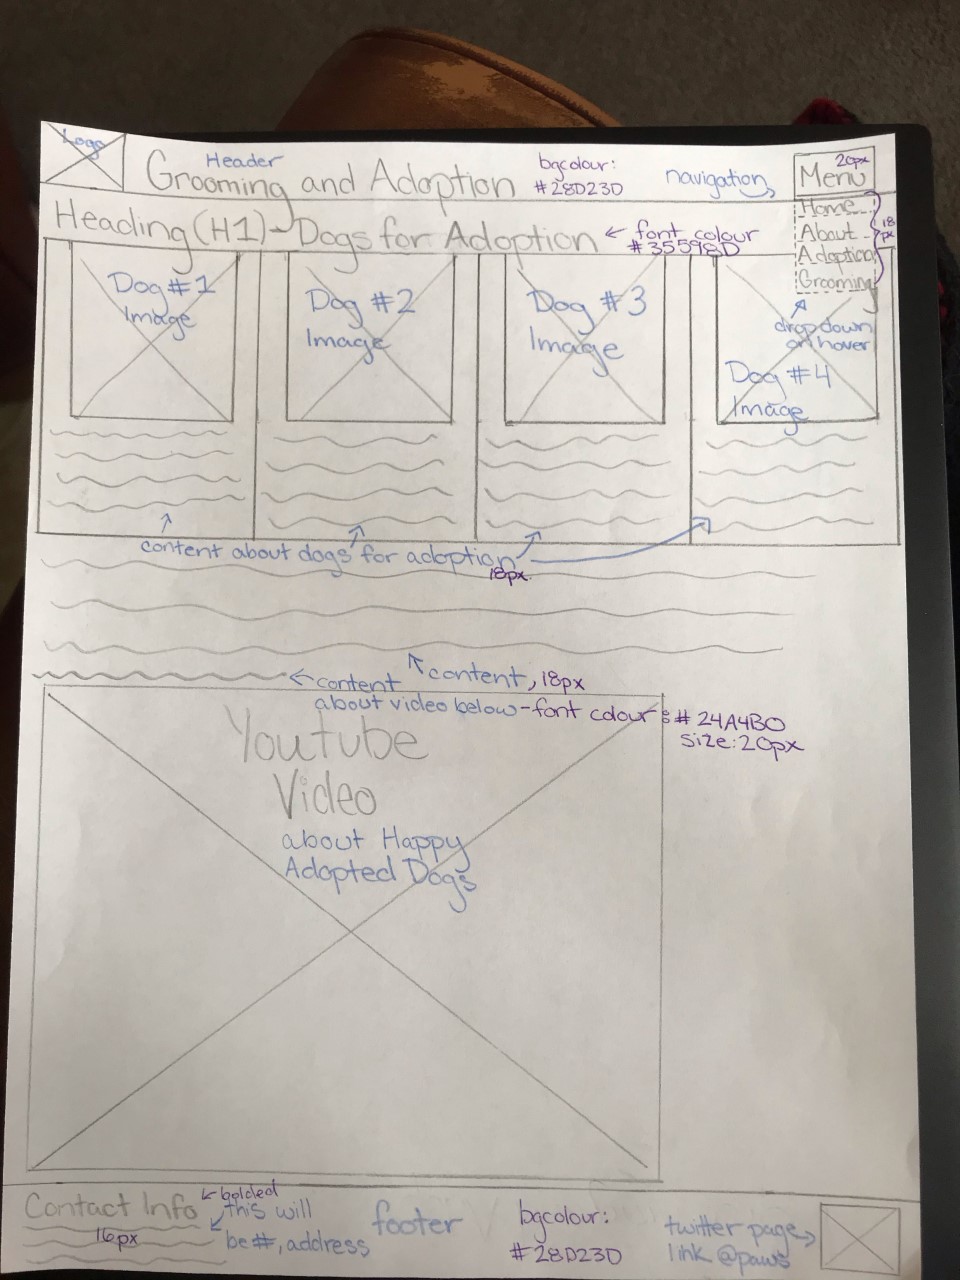 Logo
Header
Grooming and Adoption
bgcolour:
#28D23D
navigation
20px
Menu
Home
About
Adoption
Grooming
18
px
Heading (H1) - Dogs for Adoption
font colour
#35598D
Dog #1
Image
Dog #2
Image
Dog #3
Image
dropdown
on hover
Dog #4
Image
content about dogs for adoption
18px
content, 18px
content
about video below - font colour: #24A4B0
size: 20px
Youtube
Video
about Happy
Adopted Dogs
Contact Info
bolded
this will
be #, address
16px
footer
bgcolour:
#28D23D
twitter page
link @paws